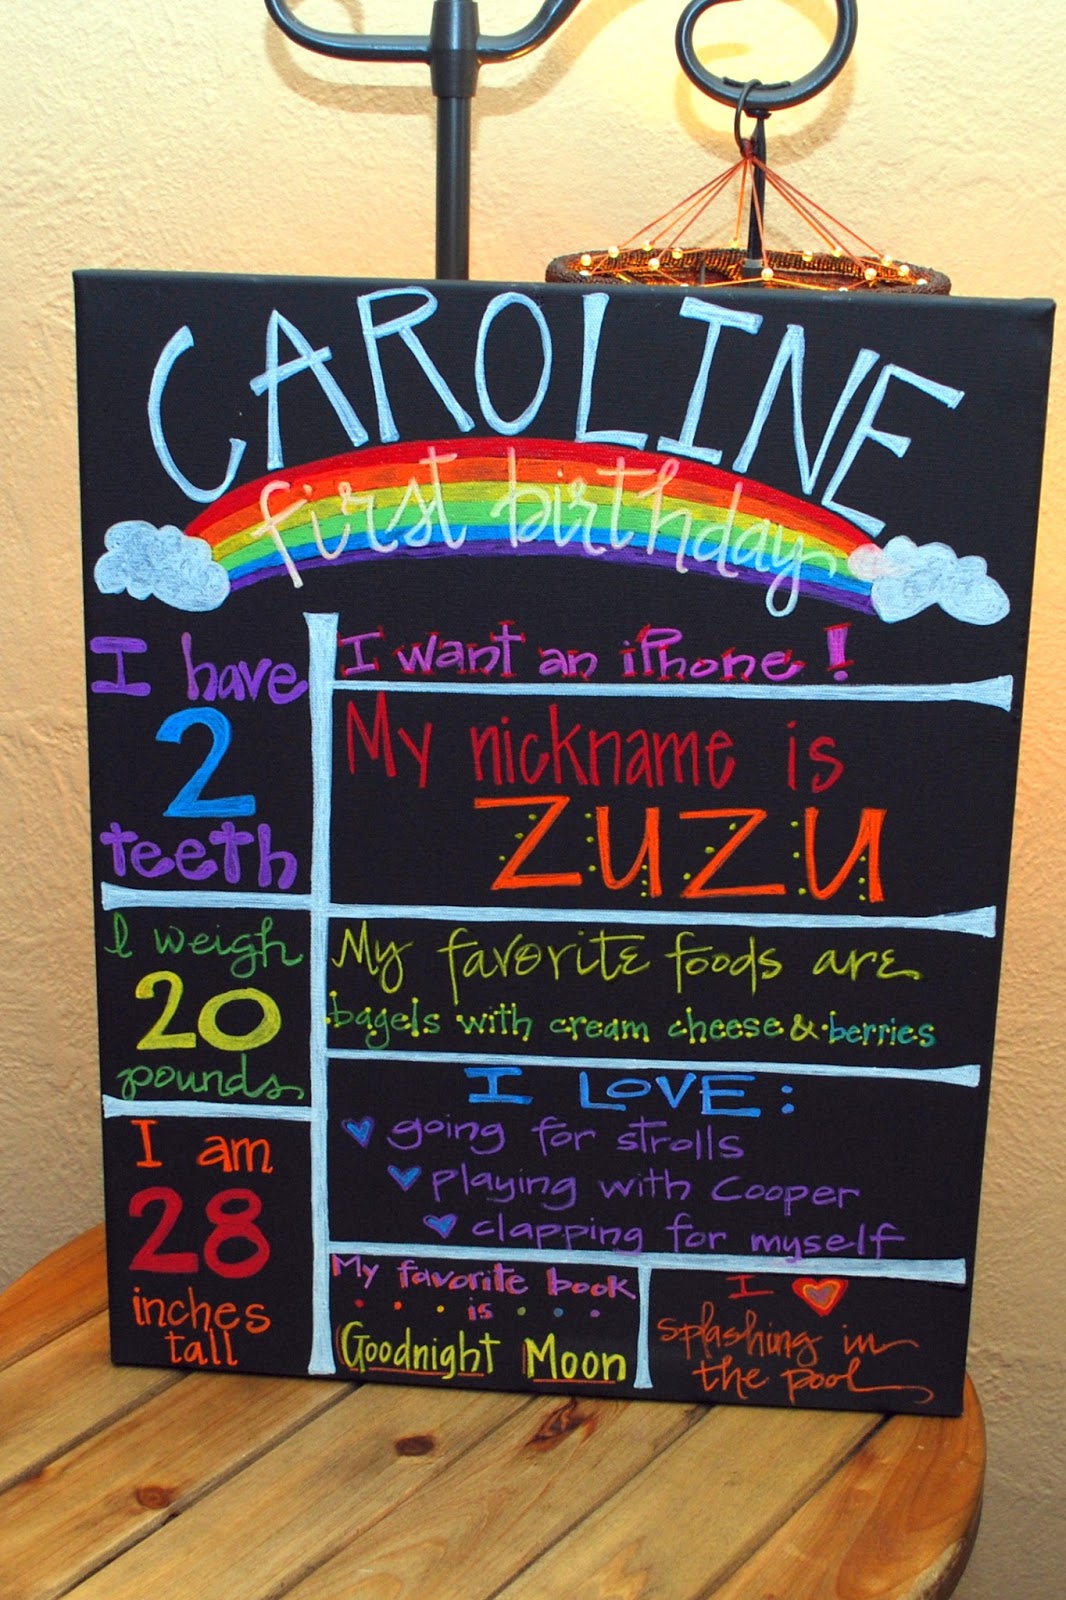 CAROLINE
first birthday
I have
2
teeth
I weigh
20
pounds
I am
28
inches
tall
I want an iPhone!
My nickname is
ZUZU
My favorite foods are
bagels with cream cheese & berries
I LOVE:
going for strolls
playing with Cooper
clapping for myself
My favorite book
is
Goodnight Moon
I
splashing in
the pool